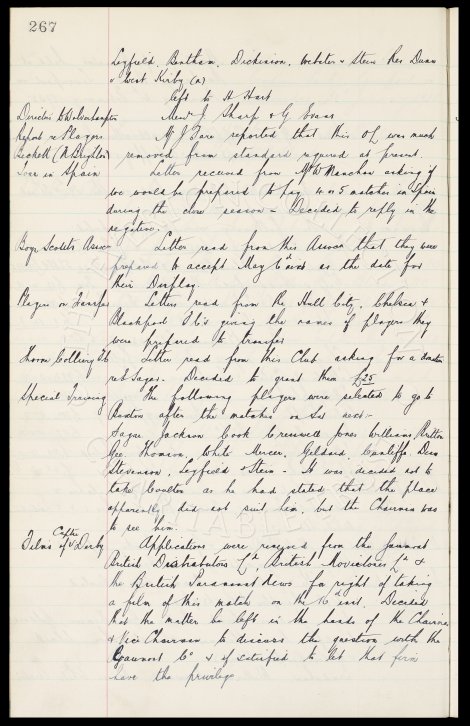 267
Leyfield, Bentham, Dickinson, Webster & Stein Res Dunn
v West Kirby (a)
left to H Hart
Director to Wolverhampton Messrs J Sharp & G Evans
Report re Players Mr J Fare reported that this O.L was much
Leckett (N Brighton) removed from standard required at present.
Tour in Spain Letter received from Mr W Manchan asking if
we would be prepared to play 4 or 5 matches in Spain
during the close season - Decided to reply in the
negative.
Boys Scouts Assocn Letter read from this Assocn that they were
prepared to accept May 6th inst as the date for
their Display.
Players on Transfer Letters read from the Hull City, Chelsea &
Blackpool F C's giving the names of players they
were prepared to transfer
Thorne Colliery F.C Letter read from this Club asking for a donation
re Sagar. Decided to grant them £25
Special Training The following players were selected to go to
Buxton after the matches on Sat next:-
Sagar Jackson Cook Cresswell Jones Williams, Britton
Gee Thomson, White Mercer, Geldard, Cunliffe, Dean
Stevenson, Leyfield & Stein - It was decided not to
take Coulter as he had stated that the place
apparently did not suit him, but the Chairman was
to see him.
Films of Cuptie v Derby Applications were received from the Gaumont
British Distributors Ltd, British Movietones Ld &
the British Paramount News for right of taking
a film of this match on the 16th inst. Decided
that the matter be left in the hands of the Chairman
& Vice Chairman to discuss the question with the
Gaumont Co & if satisfied to let that firm
have the privilege